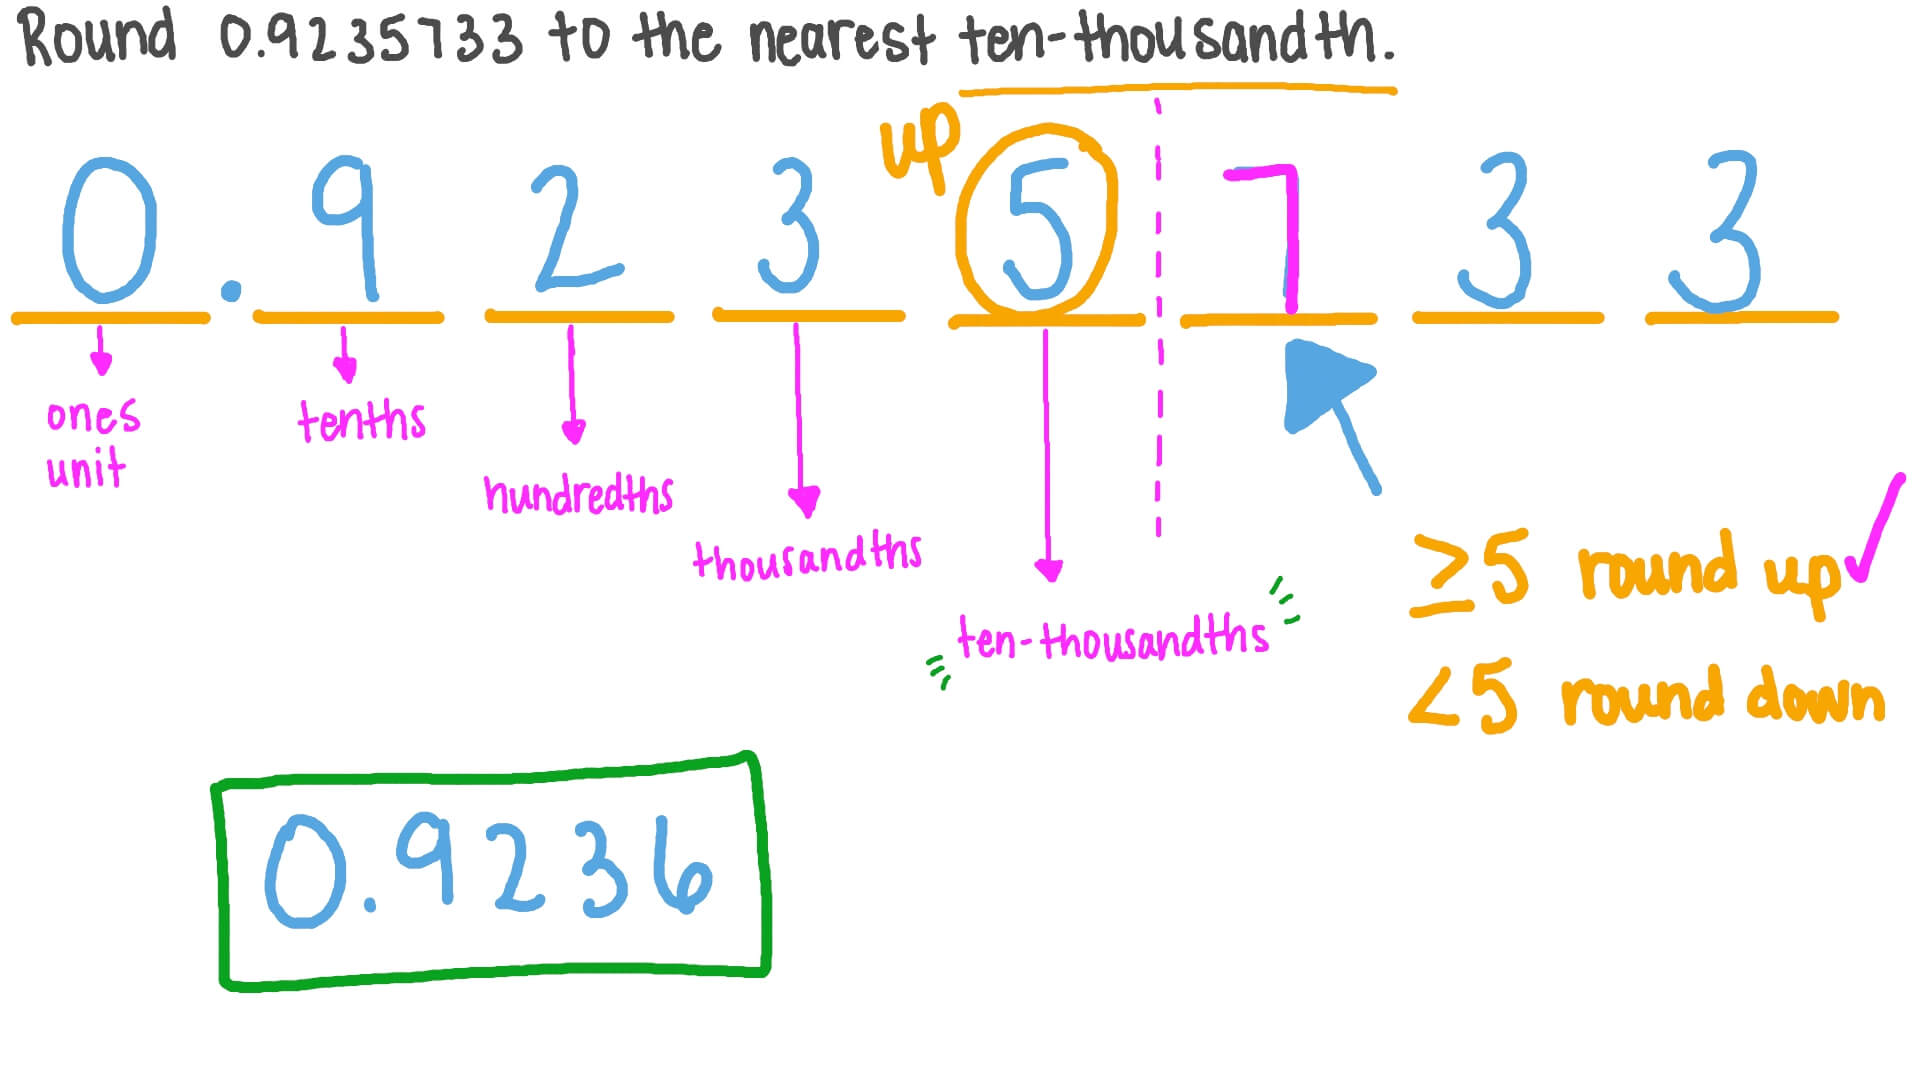 Round 0.9235733 to the nearest ten-thousandth.
up
0.9235733
ones
unit
tenths
hundredths
thousandths
ten-thousandths
≥5 round up ✓
<5 round down
0.9236